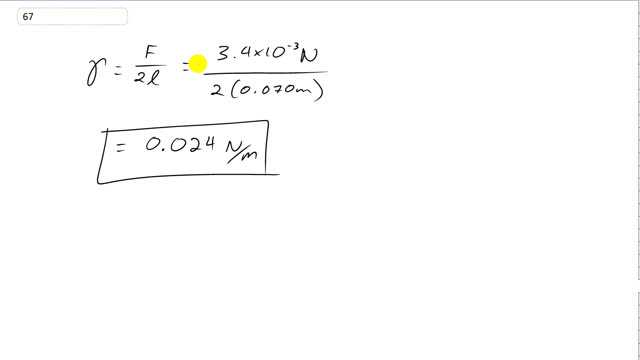 67
γ = F/2l = 3.4×10⁻³ N / 2(0.070m)
= 0.024 N/m